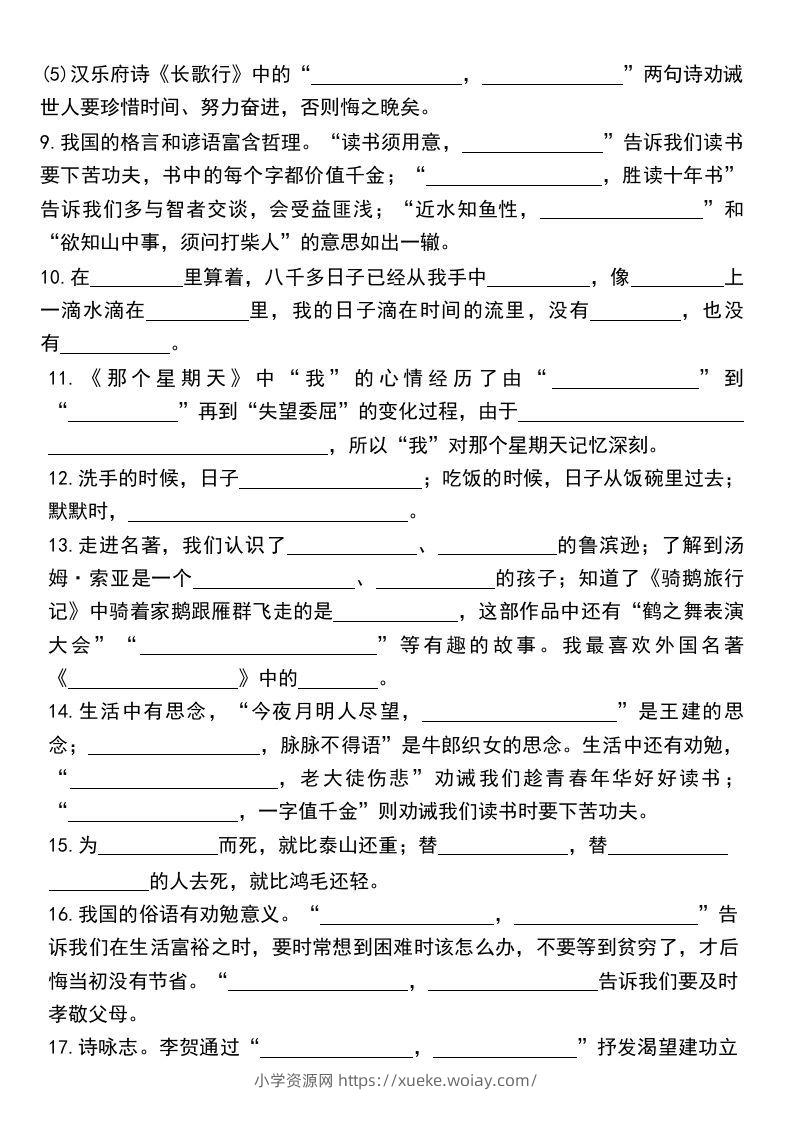 (5)汉乐府诗《长歌行》中的“______________，______________”两句诗劝诫
世人要珍惜时间、努力奋进，否则悔之晚矣。
9.我国的格言和谚语富含哲理。“读书须用意，______________”告诉我们读书
要下苦功夫，书中的每个字都价值千金；“__________________，胜读十年书”
告诉我们多与智者交谈，会受益匪浅；“近水知鱼性，________________”和
“欲知山中事，须问打柴人”的意思如出一辙。
10.在_________里算着，八千多日子已经从我手中__________，像_________上
一滴水滴在__________里，我的日子滴在时间的流里，没有_________，也没
有___________。
11.《那个星期天》中“我”的心情经历了由“______________”到
“___________”再到“失望委屈”的变化过程，由于______________________
____________________________，所以“我”对那个星期天记忆深刻。
12.洗手的时候，日子__________________；吃饭的时候，日子从饭碗里过去；
默默时，____________________________。
13.走进名著，我们认识了_____________、____________的鲁滨逊；了解到汤
姆·索亚是一个________________、____________的孩子；知道了《骑鹅旅行
记》中骑着家鹅跟雁群飞走的是_____________，这部作品中还有“鹤之舞表演
大会”“________________________”等有趣的故事。我最喜欢外国名著
《_________________》中的________。
14.生活中有思念，“今夜月明人尽望，____________________”是王建的思
念；_________________，脉脉不得语”是牛郎织女的思念。生活中还有劝勉，
“_____________________，老大徒伤悲”劝诫我们趁青春年华好好读书；
“_________________，一字值千金”则劝诫我们读书时要下苦功夫。
15.为____________而死，就比泰山还重；替_____________，替____________
__________的人去死，就比鸿毛还轻。
16.我国的俗语有劝勉意义。“_________________，__________________”告
诉我们在生活富裕之时，要时常想到困难时该怎么办，不要等到贫穷了，才后
悔当初没有节省。“__________________，_________________告诉我们要及时
孝敬父母。
17.诗咏志。李贺通过“_______________，______________”抒发渴望建功立
小学资源网 https://xueke.woiay.com/